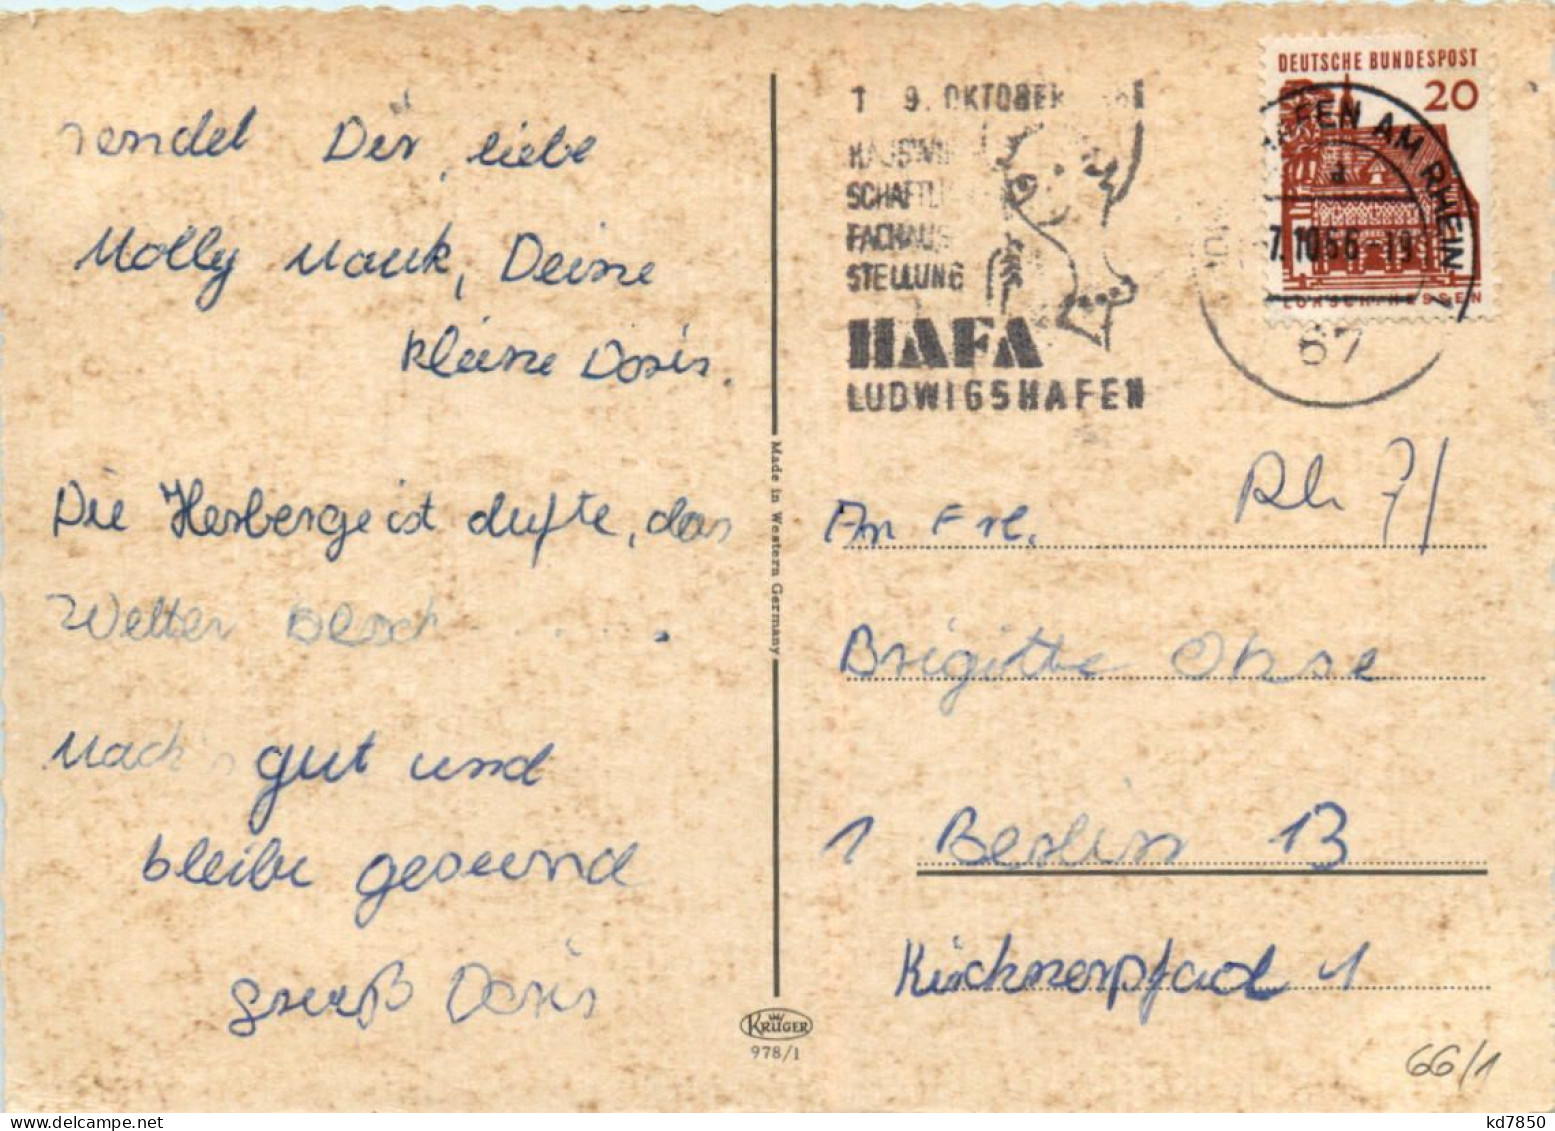 sendet Dir, liebe
Molly Mauk, Deine
kleine Doris.
Die Herberge ist dufte, das
Wetter
Mach's gut und
bleibe gesund
Gruß Doris
Made in Western Germany
KRÜGER
978/1
1 9. OKTOBER
HAUSWIRT
SCHAFTL
FACHAUS
STELLUNG
HAFA
LUDWIGSHAFEN
DEUTSCHE BUNDESPOST
20
LORSCH/HESSEN
HAFEN AM RHEIN 1
a
7.10.66-19
67
Rh 71
An Frl.
Brigitte Ohse
1 Berlin 13
Kirchnerpfad 1
66/1
kd7850